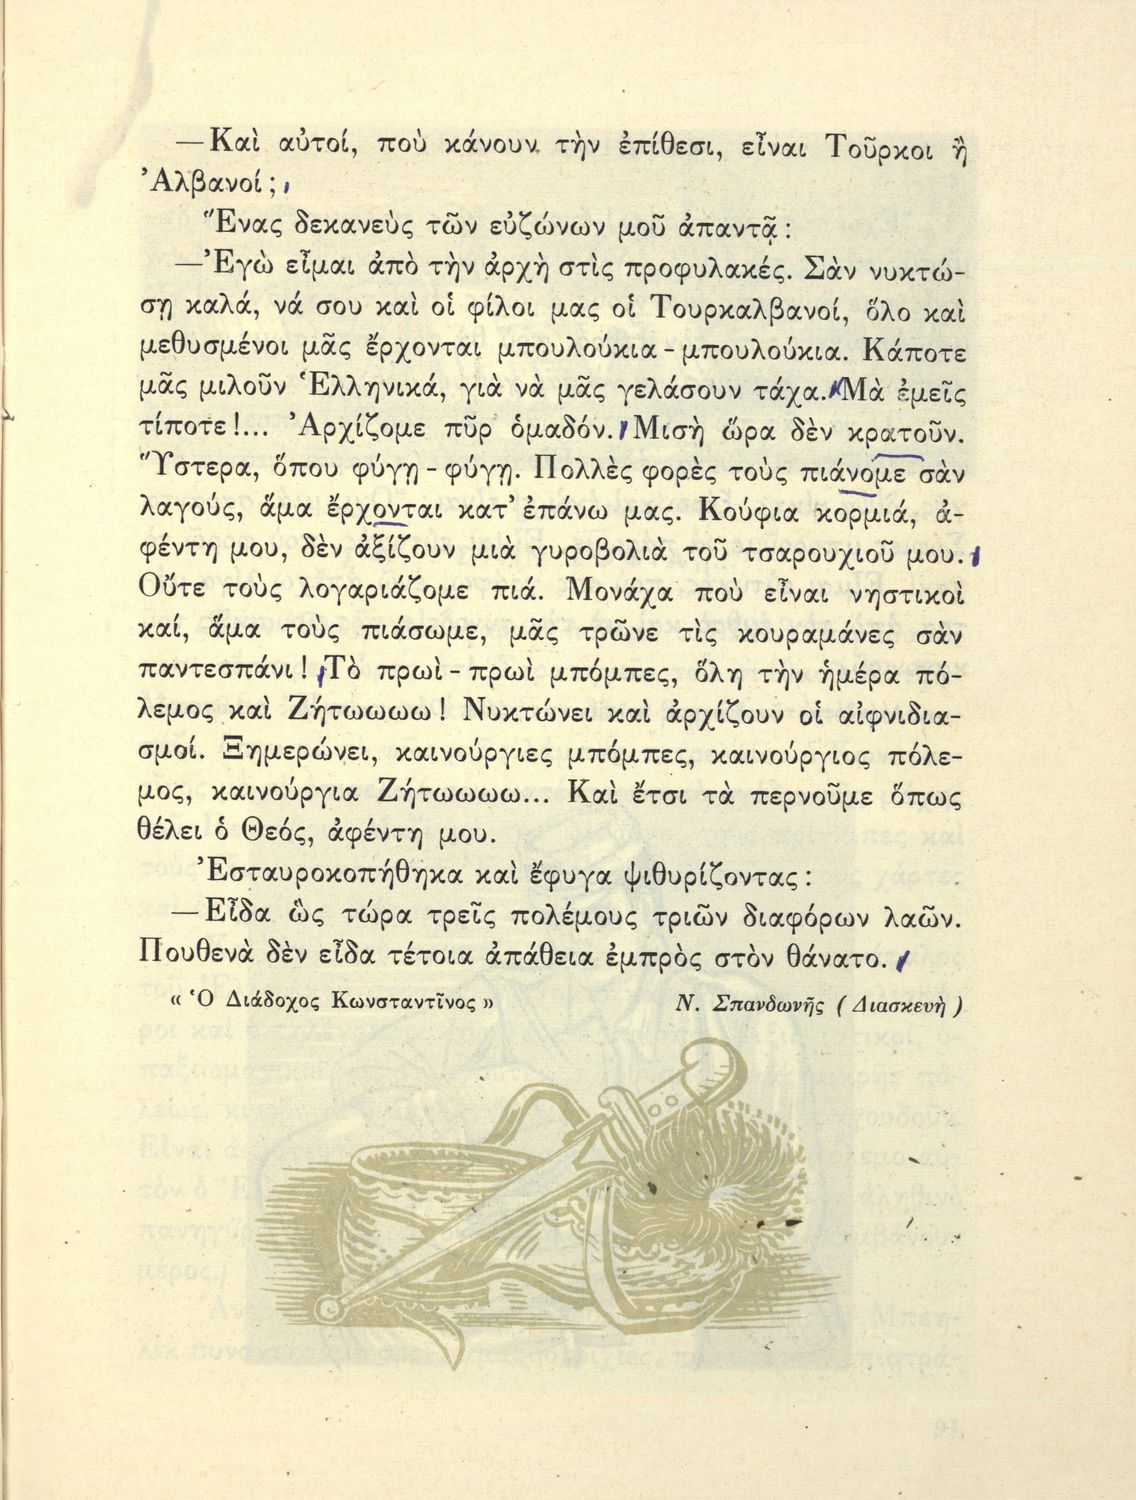 —Καὶ αὐτοί, ποὺ κάνουν τὴν ἐπίθεσι, εἶναι Τοῦρκοι ἢ
Ἀλβανοί;
Ἕνας δεκανεὺς τῶν εὐζώνων μοῦ ἀπαντᾷ:
—Ἐγὼ εἶμαι ἀπὸ τὴν ἀρχὴ στὶς προφυλακές. Σὰν νυκτώ-
σῃ καλά, νά σου καὶ οἱ φίλοι μας οἱ Τουρκαλβανοί, ὅλο καὶ
μεθυσμένοι μᾶς ἔρχονται μπουλούκια - μπουλούκια. Κάποτε
μᾶς μιλοῦν Ἑλληνικά, γιὰ νὰ μᾶς γελάσουν τάχα. Μὰ ἐμεῖς
τίποτε!... Ἀρχίζομε πῦρ ὁμαδόν. Μισὴ ὥρα δὲν κρατοῦν.
Ὕστερα, ὅπου φύγῃ - φύγῃ. Πολλὲς φορὲς τοὺς πιάνομε σὰν
λαγούς, ἅμα ἔρχονται κατ' ἐπάνω μας. Κούφια κορμιά, ἀ-
φέντη μου, δὲν ἀξίζουν μιὰ γυροβολιὰ τοῦ τσαρουχιοῦ μου.
Οὔτε τοὺς λογαριάζομε πιά. Μονάχα ποὺ εἶναι νηστικοὶ
καί, ἅμα τοὺς πιάσωμε, μᾶς τρῶνε τὶς κουραμάνες σὰν
παντεσπάνι! Τὸ πρωὶ - πρωὶ μπόμπες, ὅλη τὴν ἡμέρα πό-
λεμος καὶ Ζήτωωωω! Νυκτώνει καὶ ἀρχίζουν οἱ αἰφνιδια-
σμοί. Ξημερώνει, καινούργιες μπόμπες, καινούργιος πόλε-
μος, καινούργια Ζήτωωωω... Καὶ ἔτσι τὰ περνοῦμε ὅπως
θέλει ὁ Θεός, ἀφέντη μου.
Ἐσταυροκοπήθηκα καὶ ἔφυγα ψιθυρίζοντας:
—Εἶδα ὣς τώρα τρεῖς πολέμους τριῶν διαφόρων λαῶν.
Πουθενὰ δὲν εἶδα τέτοια ἀπάθεια ἐμπρὸς στὸν θάνατο.
« Ὁ Διάδοχος Κωνσταντῖνος » Ν. Σπανδωνῆς ( Διασκευὴ )